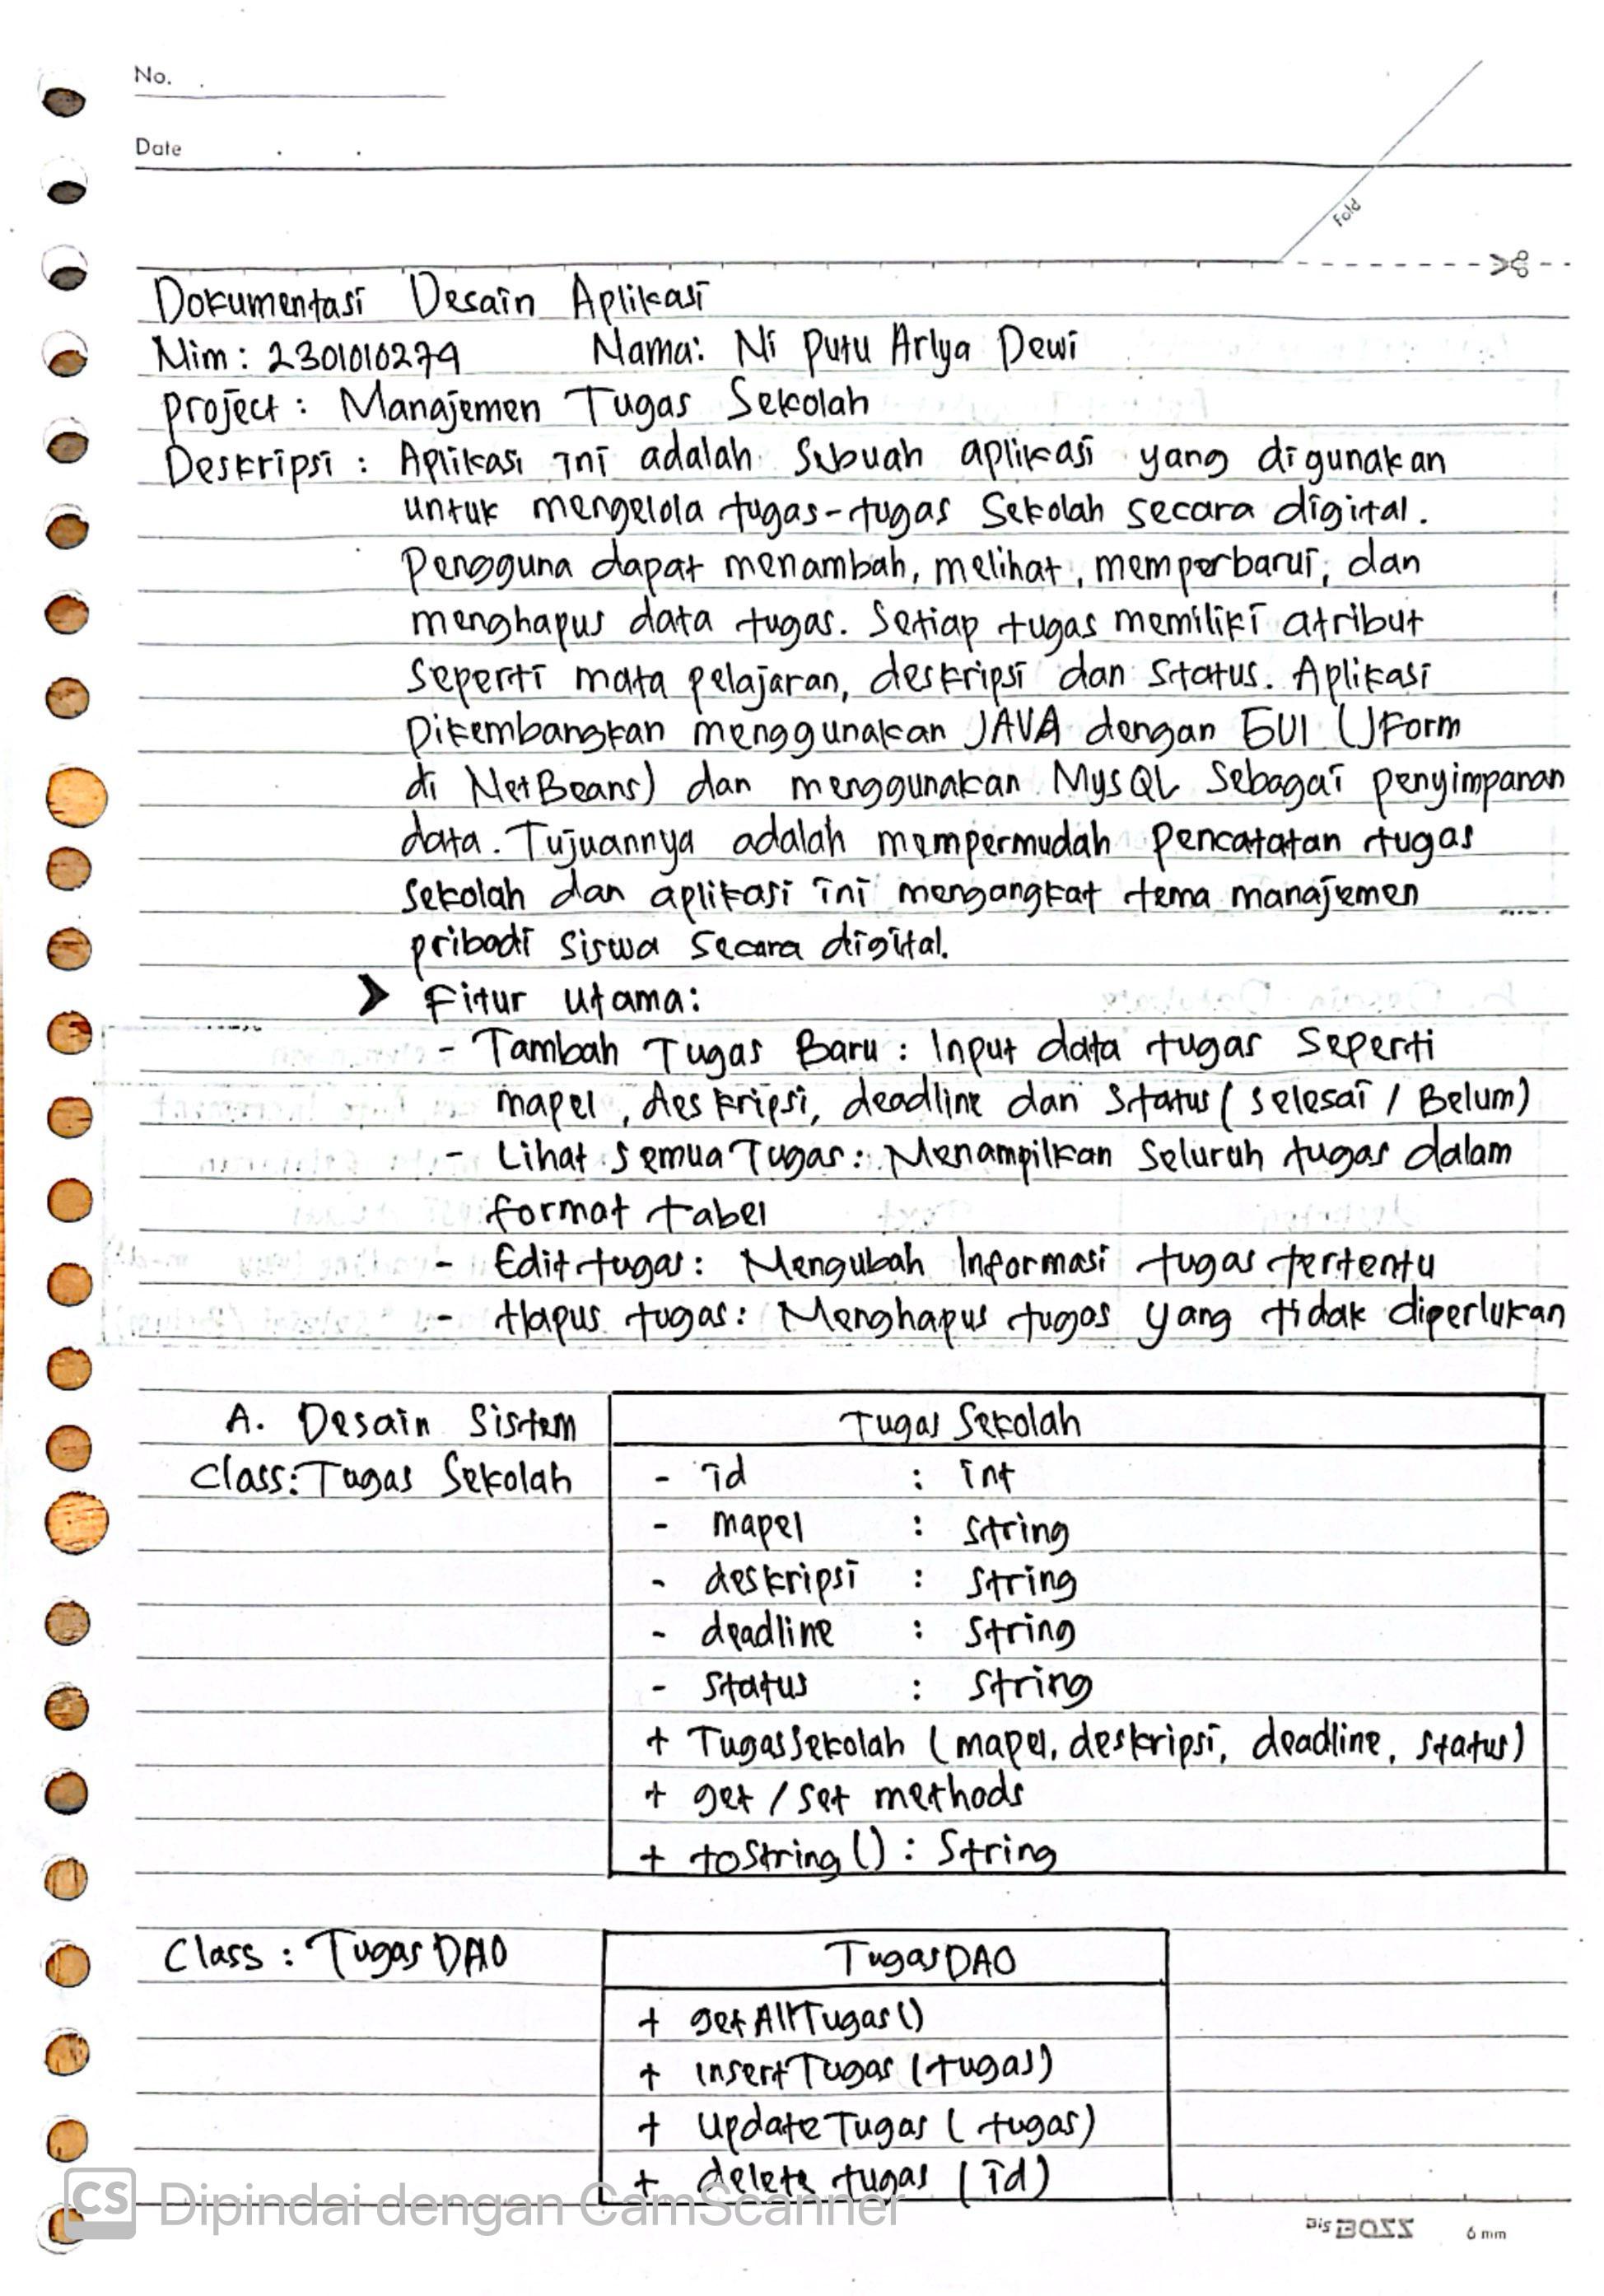 No.
Date
Fold
Dokumentasi Desain Aplikasi
Nim: 2301010279 Nama: Ni Putu Arlya Dewi
project: Manajemen Tugas Sekolah
Deskripsi: Aplikasi ini adalah sebuah aplikasi yang digunakan
untuk mengelola tugas-tugas Sekolah secara digital.
Pengguna dapat menambah, melihat, memperbarui, dan
menghapus data tugas. Setiap tugas memiliki atribut
Seperti mata pelajaran, deskripsi dan Status. Aplikasi
Dikembangkan menggunakan JAVA dengan GUI (JForm
di NetBeans) dan menggunakan MysQL Sebagai penyimpanan
data. Tujuannya adalah mempermudah pencatatan tugas
sekolah dan aplikasi ini mengangkat tema manajemen
pribadi siswa secara digital.
> Fitur Utama:
- Tambah Tugas Baru: Input data tugas Seperti
mapel, deskripsi, deadline dan Status (Selesai / Belum)
- Lihat Semua Tugas: Menampilkan Seluruh tugas dalam
format tabel
- Edit tugas: Mengubah Informasi tugas tertentu
- Hapus tugas: Menghapus tugas yang tidak diperlukan
A. Desain Sistem
Class: Tugas Sekolah
Tugas Sekolah
- id : int
- mapel : String
- deskripsi : String
- deadline : String
- Status : String
+ TugasSekolah (mapel, deskripsi, deadline, status)
+ get / set methods
+ toString() : String
Class: TugasDAO
TugasDAO
+ getAllTugas()
+ insertTugas (tugas)
+ updateTugas (tugas)
+ delete tugas (id)
CS Dipindai dengan CamScanner
Big BOSS 6 mm